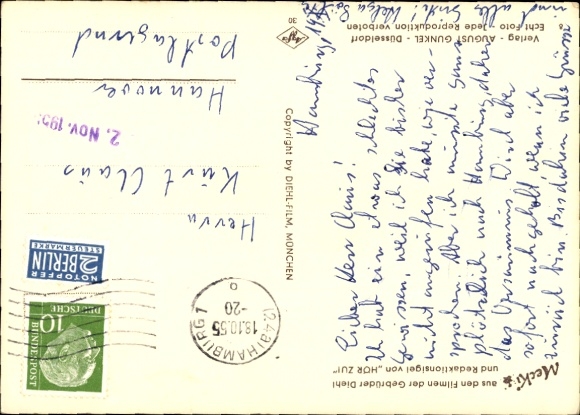 Mecki
aus den Filmen der Gebrüder Diehl
und Redaktionsigel von „HÖR ZU!"
Hamburg,
Lieber Herr Claus!
Ich habe ein etwas schlechtes
Gewissen, weil ich Sie bisher
nicht angerufen habe, wie ver-
sprochen. Aber ich musste ganz
plötzlich nach Hamburg, daher
das Versäumnis. Wird aber
sofort nachgeholt, wenn ich
zurück bin. Bis dahin viele Grüsse
und alles Gute! Helga
Copyright by DIEHL-FILM, MÜNCHEN
Verlag - AUGUST GUNKEL - Düsseldorf
Echt Foto - Jede Reproduktion verboten
Agfa
30
(24a) HAMBURG 1
18.10.55
-20
o
10
DEUTSCHE
BUNDESPOST
NOTOPFER
2 BERLIN
STEUERMARKE
Herrn
Kurt Claus
2. Nov. 195
Hannover
Postlagernd